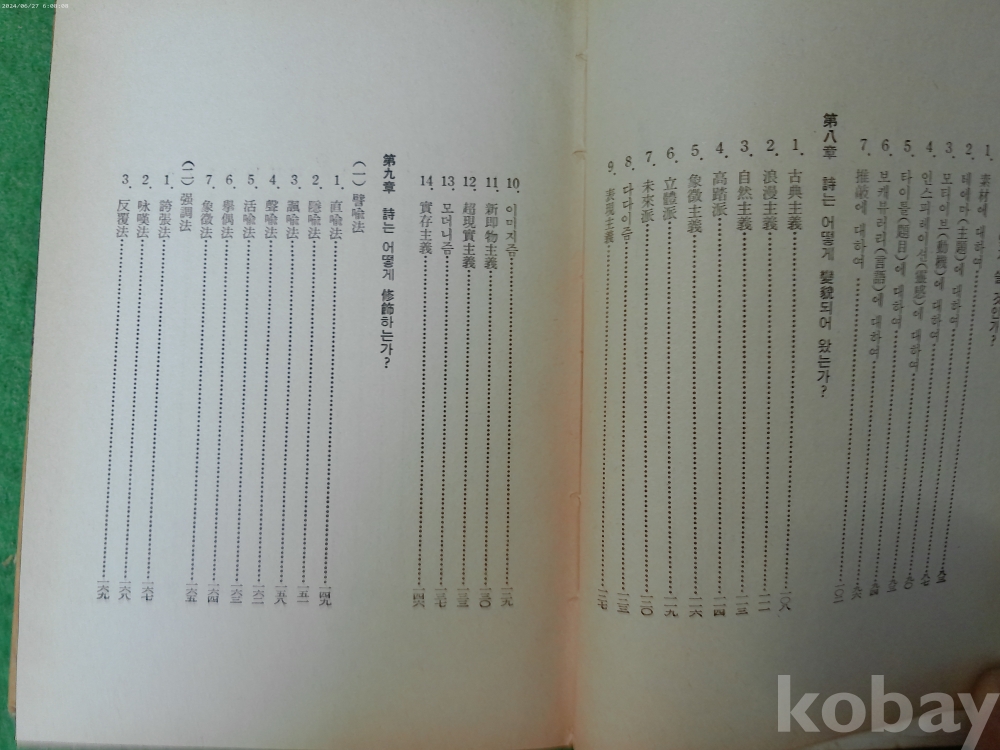 2024/06/27 6:00:00
1. 素材에 대하여
2. 테에마(主題)에 대하여
3. 모티이브(動機)에 대하여
4. 인스피레이션(靈感)에 대하여
5. 타이틀(題目)에 대하여
6. 보캐뷰러리(言語)에 대하여
7. 推敲에 대하여
第八章 詩는 어떻게 變貌되어 왔는가?
1. 古典主義 一○八
2. 浪漫主義 一一一
3. 自然主義 一一三
4. 高踏派 一一四
5. 象徵主義 一一六
6. 立體派 一一九
7. 未來派 一二○
8. 다다이즘 一二三
9. 表現主義 一二七
10. 이마지즘 一二九
11. 新即物主義 一三○
12. 超現實主義 一三三
13. 모더니즘 一三七
14. 實存主義 一四六
第九章 詩는 어떻게 修飾하는가?
(一) 譬喩法
1. 直喩法 一四九
2. 隱喩法 一五一
3. 諷喩法 一五八
4. 聲喩法 一六二
5. 活喩法 一六三
6. 擧偶法 一六四
7. 象徵法 一六五
(二) 强調法
1. 誇張法 一六七
2. 咏嘆法 一六八
3. 反覆法 一六九
kobay